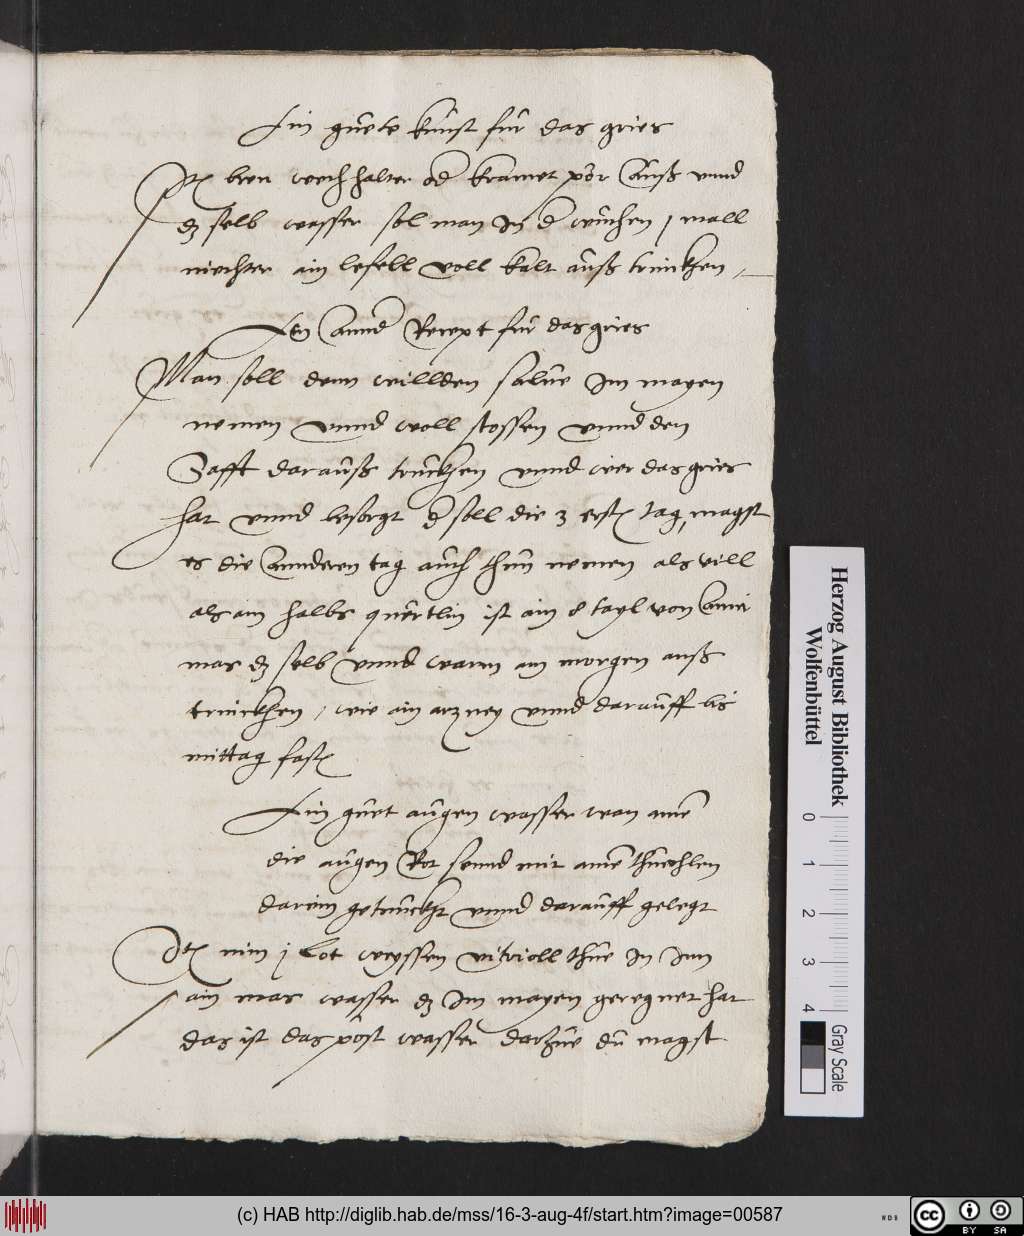 Ein guete kunst fur das gries
Itẽ bren wechhalter od kramet pör auß unnd
dz selb wasser sol man in d wuchen j mall
niechter ain lefell voll kalt auß trinckhen
Ein annd Recept fur das gries
Man soll denn willden salve im mayen
nemen unnd woll stossen unnd den
Safft darauß truckhen unnd wer das gries
hat unnd besorgt d soll die 3 erstẽ tag, magst
es die annderen tag auch thun nemen als vill
als ain halbs quertlin ist ain 8 tayl von ainer
mas dz selb unnd warm am morgen auß
trinckhen, wie ain arzney unnd darauff bis
mittag fastẽ
Ein guet augen wasser wan aine
die augen Rot sennd mit aine thuechlen
darein getruckht unnd darauff gelegt
Itẽ nim j Lot weyssen vitrioll thue in inn
ain mas wasser dz im mayen geregnet hat
das ist das post wasser darzue du magst
Herzog August Bibliothek
Wolfenbüttel
0 1 2 3 4
Gray Scale
(c) HAB http://diglib.hab.de/mss/16-3-aug-4f/start.htm?image=00587
WDB
cc BY SA